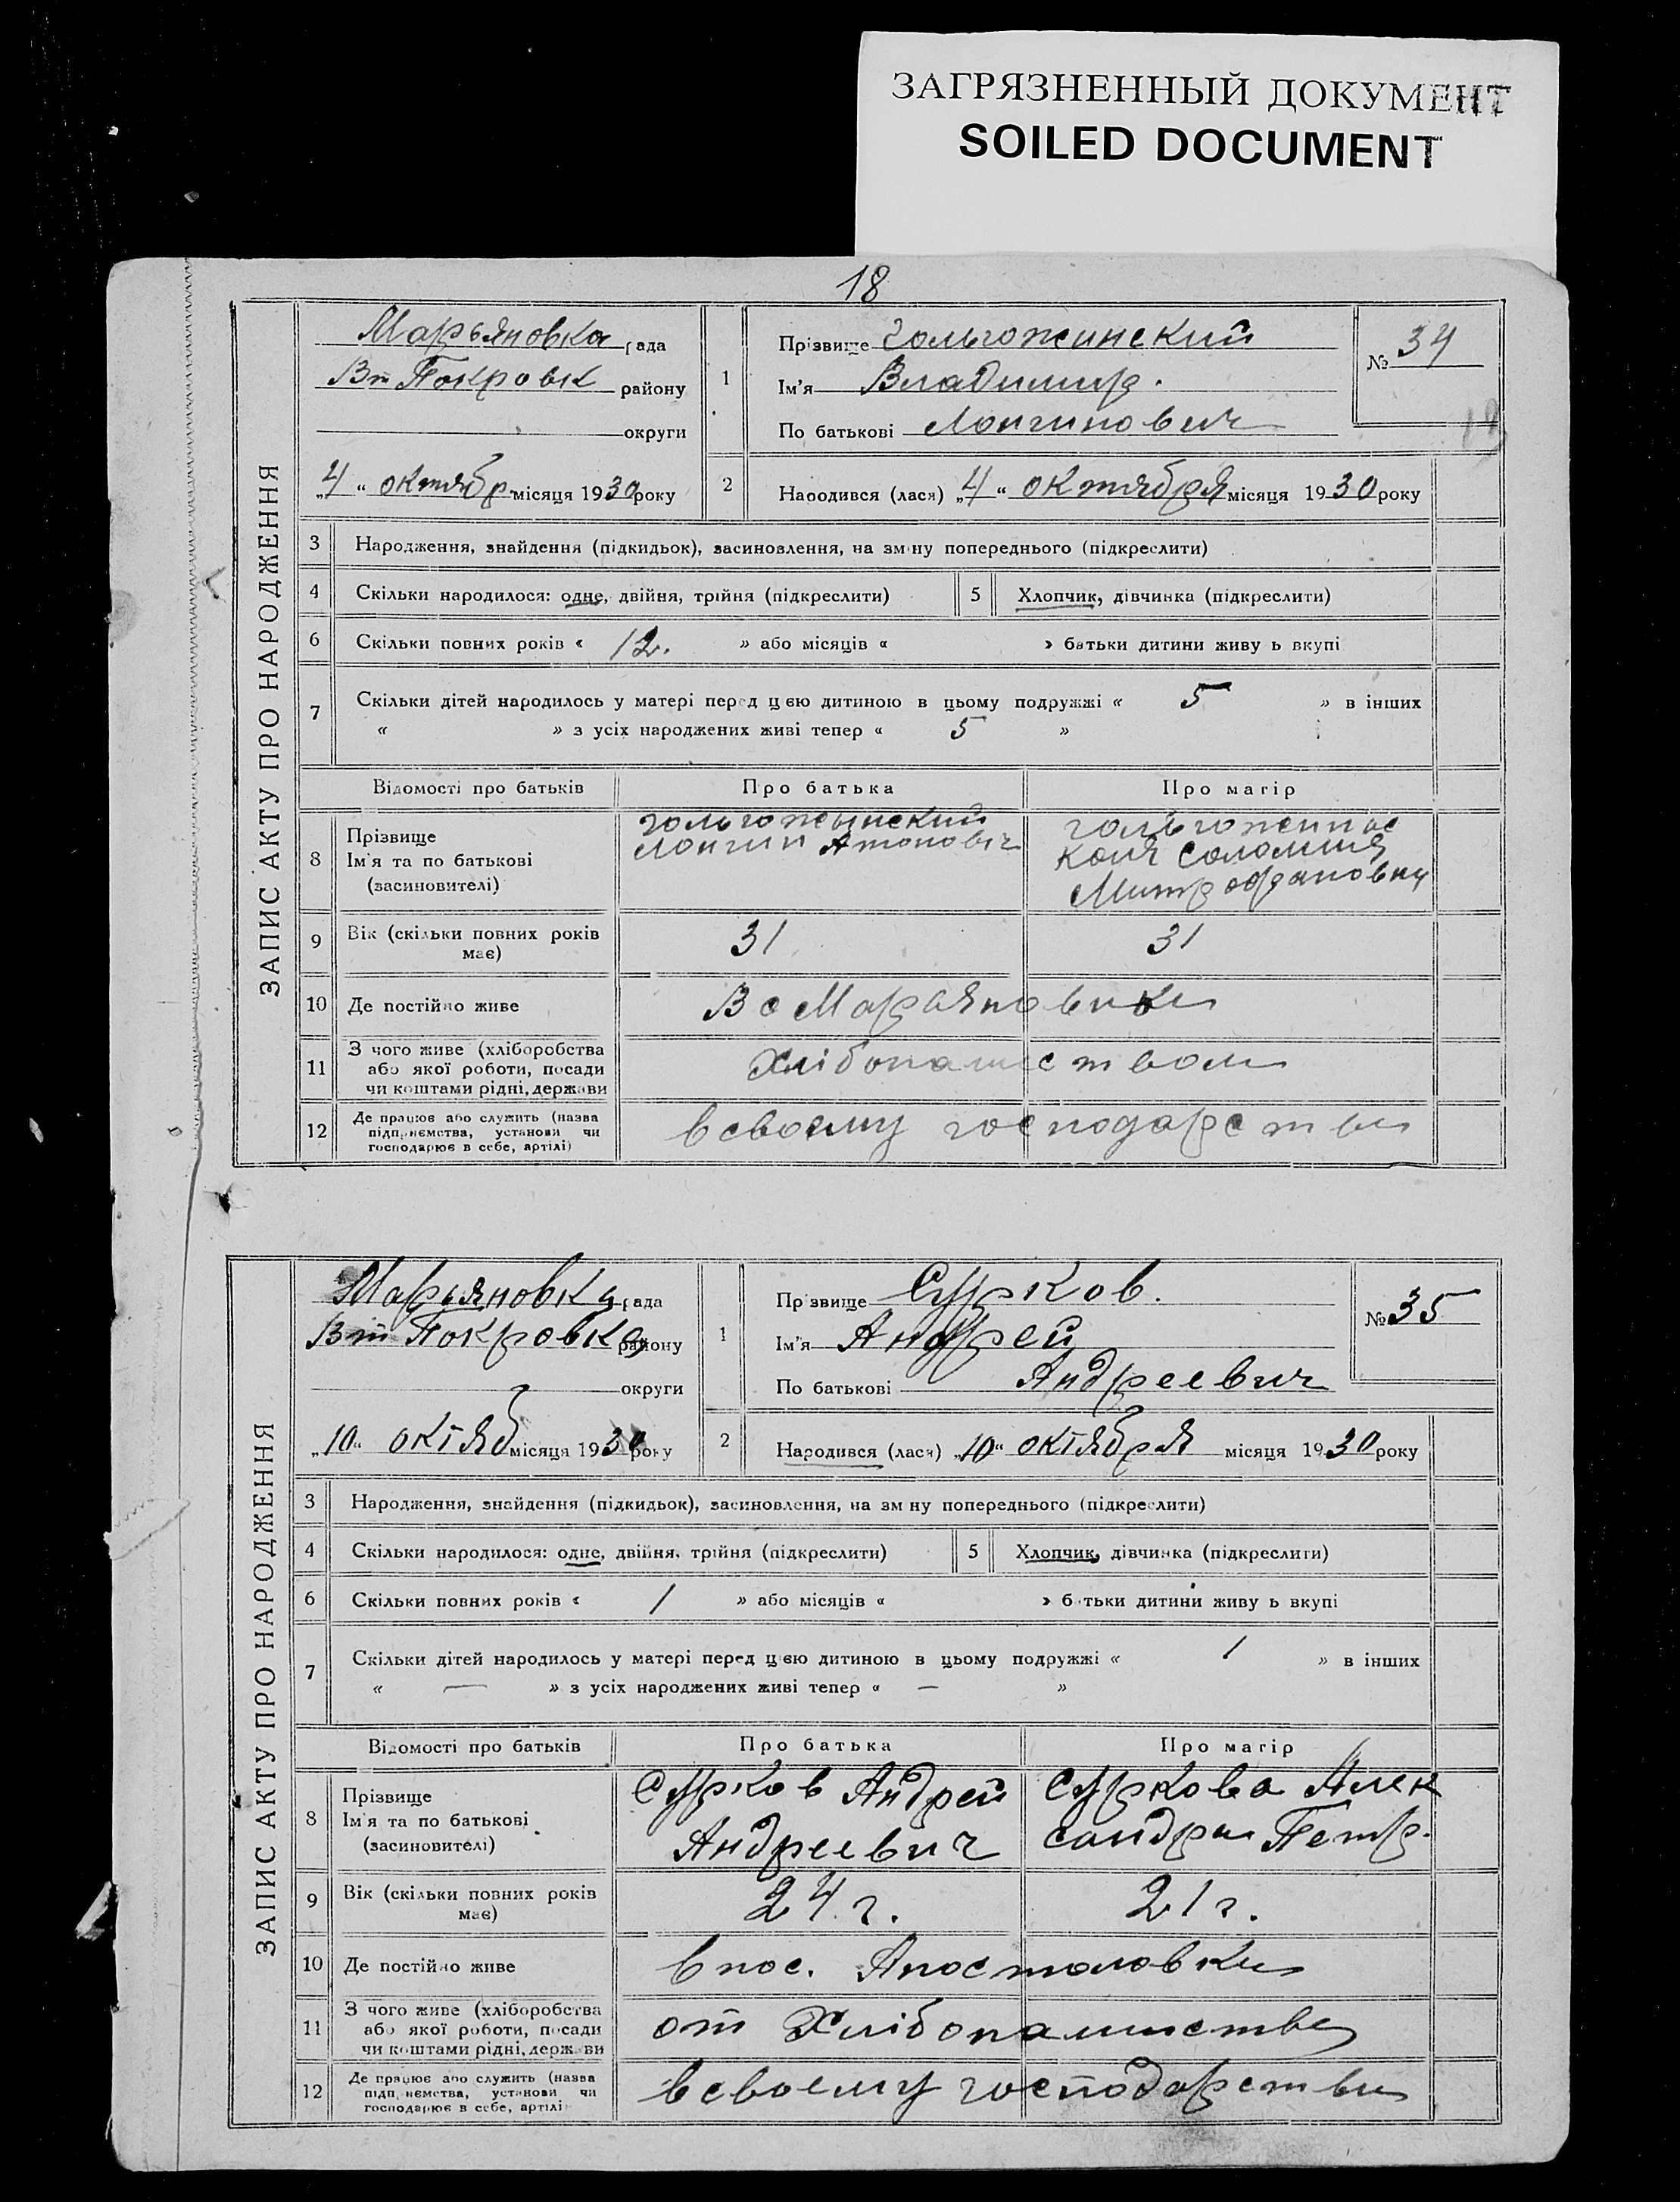 ЗАГРЯЗНЕННЫЙ ДОКУМЕНТ
SOILED DOCUMENT
18
ЗАПИС АКТУ ПРО НАРОДЖЕННЯ
Марьяновка рада
Вт Покровк району
округи
„4“ октябр. місяця 1930 року
1
Прізвище Гольгожинский
Ім'я Владимир.
По батькові Лонгинович
№ 34
2
Народився (лася) „4“ октября місяця 1930 року
3 Народження, знайдення (підкидьок), засиновлення, на зміну попереднього (підкреслити)
4 Скільки народилося: одне, двійня, трійня (підкреслити) 5 Хлопчик, дівчинка (підкреслити)
6 Скільки повних років « 12. » або місяців « » батьки дитини живу ь вкупі
7 Скільки дітей народилось у матері перед цією дитиною в цьому подружжі « 5 » в інших
« » з усіх народжених живі тепер « 5 »
Відомості про батьків Про батька Про матір
8 Прізвище
Ім'я та по батькові
(засновителі)
Гольгожинский
Лонгин
Соломия
Митрофановна
9 Вік (скільки повних років має) 31 31
10 Де постійно живе В с Марьяновки
11 З чого живе (хліборобства
або якої роботи, посади
чи коштами рідні, держави
Хлібопашеством
12 Де працює або служить (назва
підприємства, установи чи
господарює в себе, артілі)
в своему господарстви
ЗАПИС АКТУ ПРО НАРОДЖЕННЯ
Марьяновка рада
Вт Покровка району
округи
„10“ октяб місяця 1930 року
1
Прізвище Сурков.
Ім'я Андрей
По батькові Андреевич
№ 35
2
Народився (лася) „10“ октября місяця 1930 року
3 Народження, знайдення (підкидьок), засиновлення, на зм ну попереднього (підкреслити)
4 Скільки народилося: одне, двійня, трійня (підкреслити) 5 Хлопчик, дівчинка (підкреслити)
6 Скільки повних років « 1 » або місяців « » батьки дитини живу ь вкупі
7 Скільки дітей народилось у матері перед цією дитиною в цьому подружжі « 1 » в інших
« — » з усіх народжених живі тепер « — »
Відомості про батьків Про батька Про матір
8 Прізвище
Ім'я та по батькові
(засиновителі)
Сурков Андрей
Андреевич
Суркова Алек
сандра Петр.
9 Вік (скільки повних років має) 24 г. 21 г.
10 Де постійно живе в пос. Апостоловки
11 З чого живе (хліборобства
або якої роботи, посади
чи коштами рідні, держави
от Хлібопашества
12 Де працює або служить (назва
підприємства, установи чи
господарює в себе, артілі
в своему господарстви